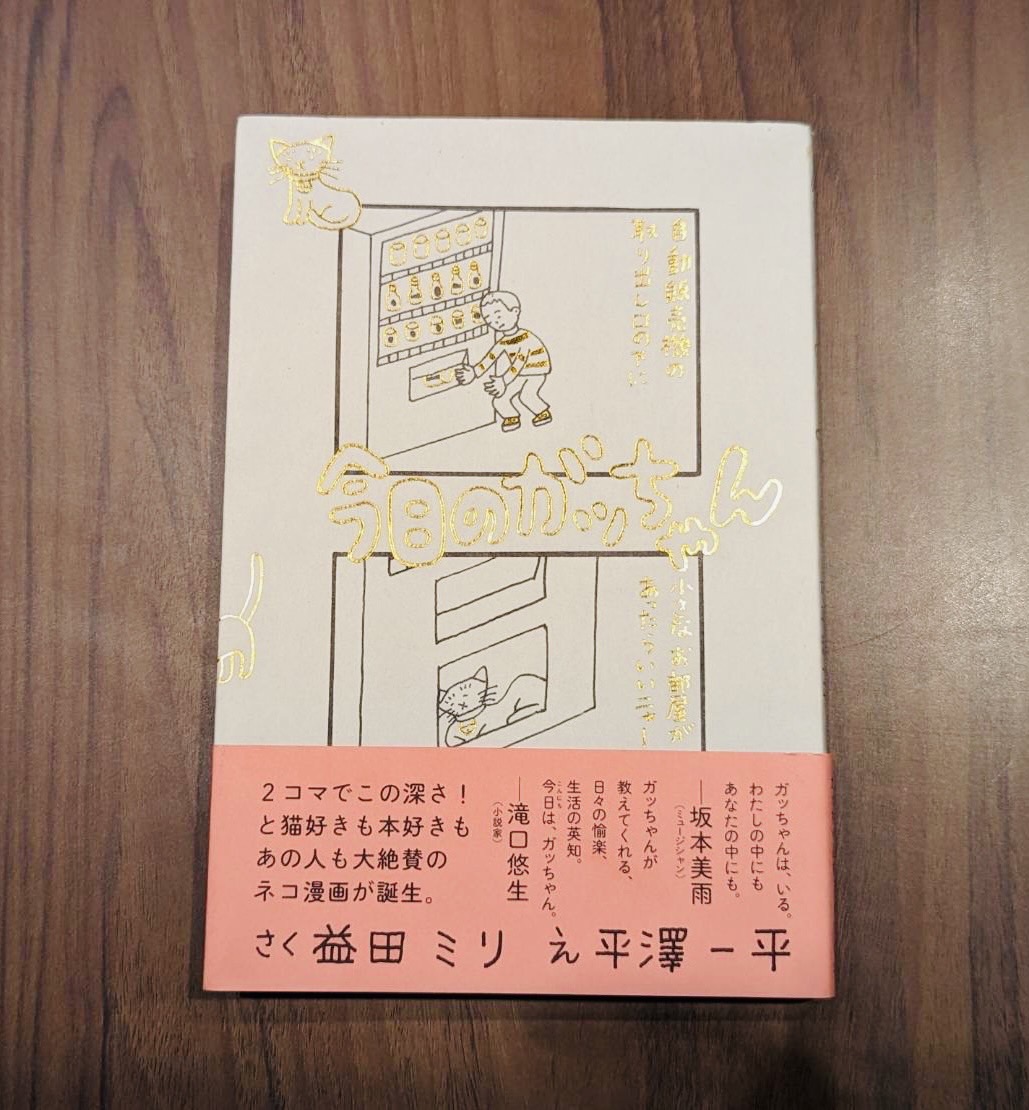 自動販売機の
取り出し口のサイズ
今日のガッちゃん
小さなお部屋が
あったらいいニャー
2コマでこの深さ!
と猫好きも本好きも
あの人も大絶賛の
ネコ漫画が誕生。
ガッちゃんは、いる。
わたしの中にも
あなたの中にも。
──坂本美雨
(ミュージシャン)
ガッちゃんが
教えてくれる、
日々の愉楽、
生活の英知。
今日は、ガッちゃん。
こんにち
──滝口悠生
(小説家)
さく 益田ミリ え 平澤一平